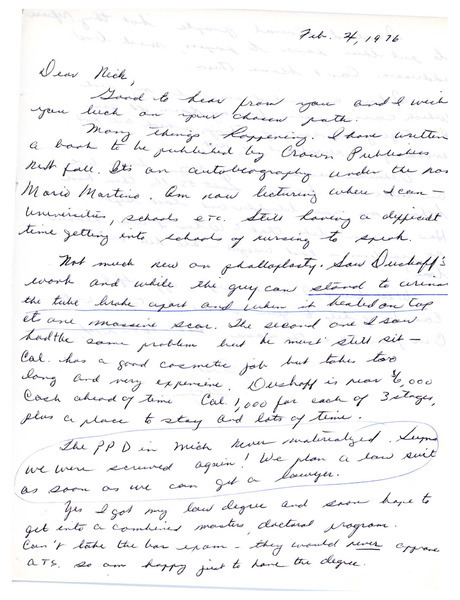 Feb. 4, 1976
Dear Nick,
Good to hear from you and I wish
you luck on your chosen path.
Many things happening. I have written
a book to be published by Crown Publishers
next fall. Its an autobiography under the nom
Mario Martino. Am now lecturing where I can –
Universities, schools etc. Still having a difficult
time getting into schools of nursing to speak.
Not much new on phalloplasty. Saw Dushoff's
work and while the guy can stand to urinate
the tube broke apart and when it healed on top
it one massive scar. The second one I saw
had the same problem but he must still sit –
Cal. has a good cosmetic job but takes too
long and very expensive. Dushoff is near $6,000
cash ahead of time Cal. 1,000 for each of 3 stages,
plus a place to stay and lots of time.
The PPD in Mich never materialized. Seems
we were screwed again! We plan a law suit
as soon as we can get a lawyer.
Yes I got my law degree and soon hope to
get into a combined masters, doctoral program.
Can't take the bar exam – they would never approve
a T.S. so am happy just to have the degree.